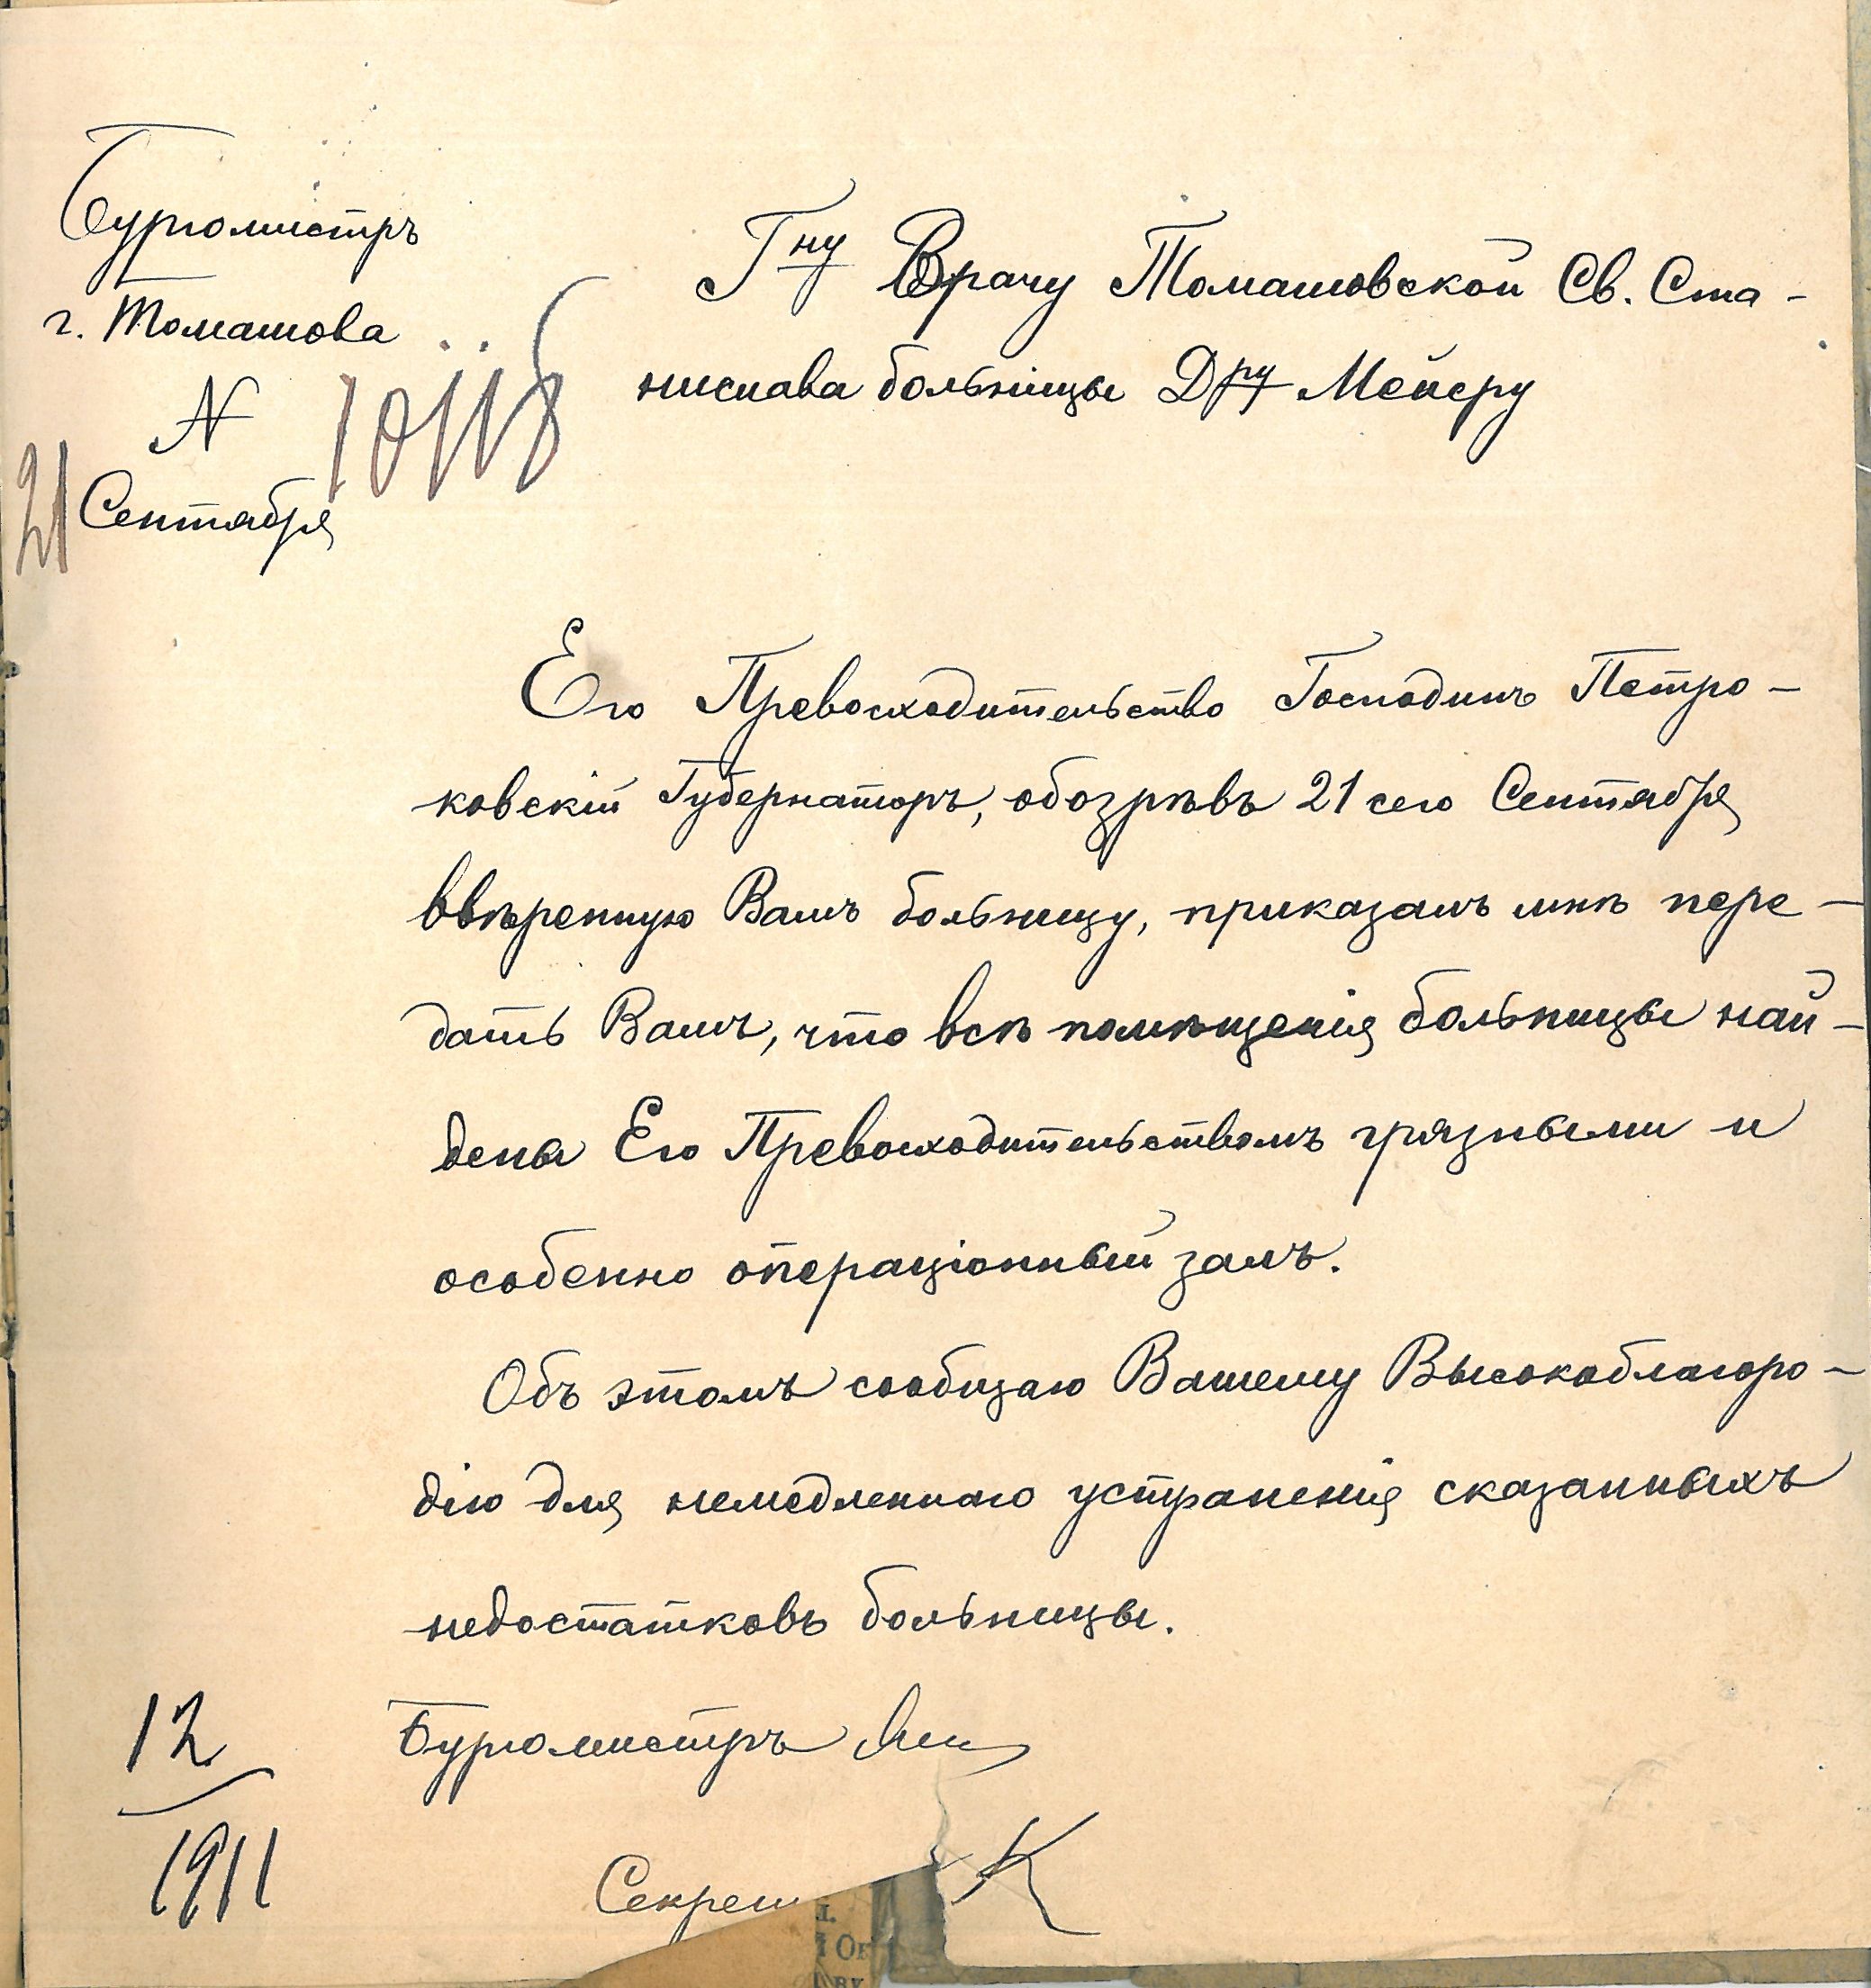 Бургомистръ
г. Томашова
N 10118
21 Сентября
Гну Врачу Томашовской Св. Ста-
нислава больницы Дру Мейеру
Его Превосходительство Господинъ Петро-
ковскій Губернаторъ, обозрѣвъ 21 сего Сентября
ввѣренную Вамъ больницу, приказалъ мнѣ пере-
дать Вамъ, что всѣ помѣщенія больницы най-
дены Его Превосходительствомъ грязными и
особенно операціонный залъ.
Объ этомъ сообщаю Вашему Высокоблагоро-
дію для немедленнаго устраненія сказанныхъ
недостатковъ больницы.
Бургомистръ
Секрет
К
12
1911